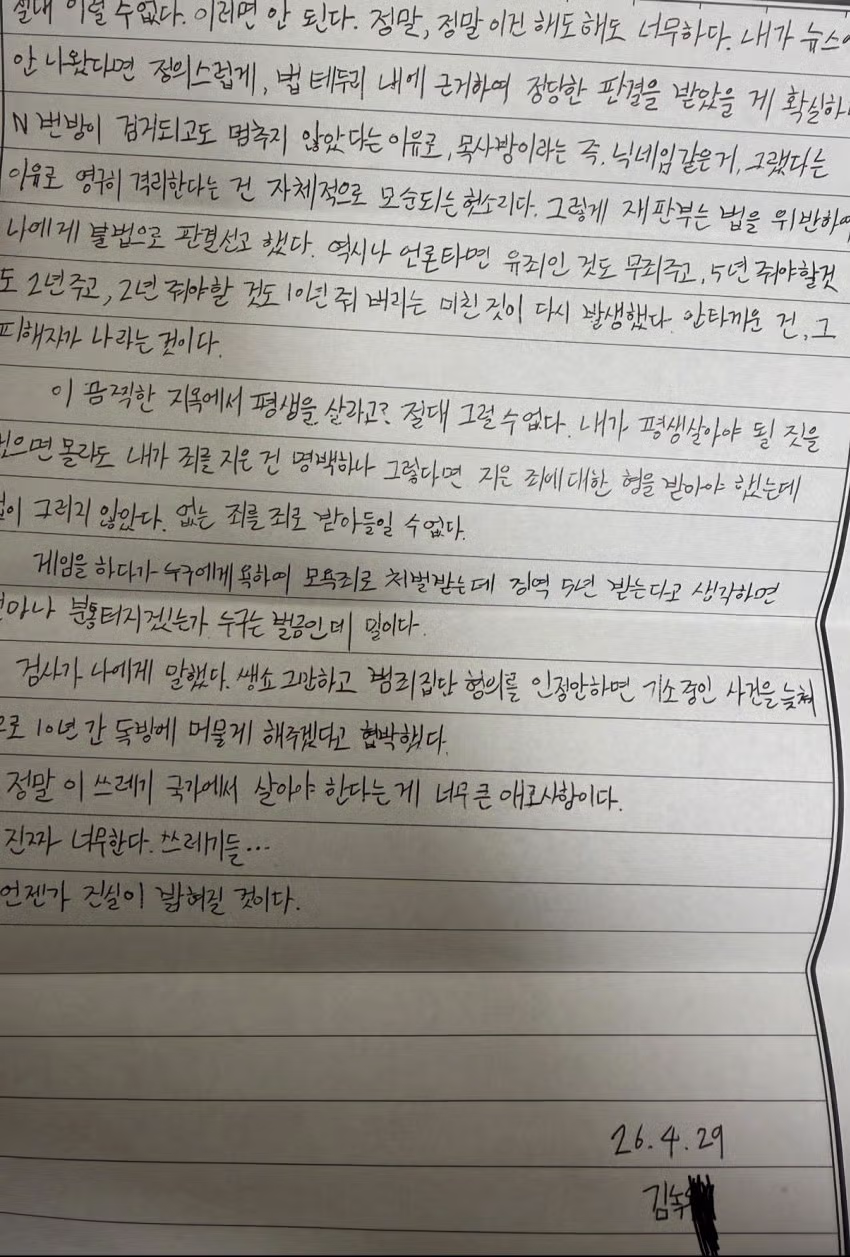 절대 이럴 수 없다. 이러면 안 된다. 정말, 정말 이건 해도해도 너무하다. 내가 뉴스에
안 나왔다면 정의스럽게, 법 테두리 내에 근거하여 정당한 판결을 받았을 게 확실하
N번방이 검거되고도 멈추지 않았다는 이유로, 목사방이라는 즉, 닉네임같은거, 그랬다는
이유로 영구히 격리한다는 건 자체적으로 모순되는 헛소리다. 그렇게 재판부는 법을 위반하여
나에게 불법으로 판결선고 했다. 역시나 언론타면 유죄인 것도 무죄주고, 5년 줘야할것
도 2년주고, 2년 줘야할 것도 10년 줘 버리는 미친 짓이 다시 발생했다. 안타까운 건, 그
피해자가 나라는 것이다.
이 끔찍한 지옥에서 평생을 살라고? 절대 그럴 수 없다. 내가 평생살아야 될 짓을
했으면 몰라도 내가 죄를 지은 건 명백하나 그렇다면 지은 죄에 대한 형을 받아야 했는데
이 그러지 않았다. 없는 죄를 죄로 받아들일 수 없다.
게임을 하다가 누구에게 욕하여 모욕죄로 처벌받는데 징역 5년 받는다고 생각하면
얼마나 분통터지겠는가 누구는 벌금인데 말이다.
검사가 나에게 말했다. 쌩쇼 그만하고 범죄집단 혐의를 인정안하면 기소중인 사건을 늦춰
으로 10년 간 독방에 머물게 해주겠다고 협박했다.
정말 이 쓰레기 국가에서 살아야 한다는 게 너무 큰 애로사항이다.
진짜 너무한다. 쓰레기들...
언젠가 진실이 밝혀질 것이다.
26.4.29
김녹